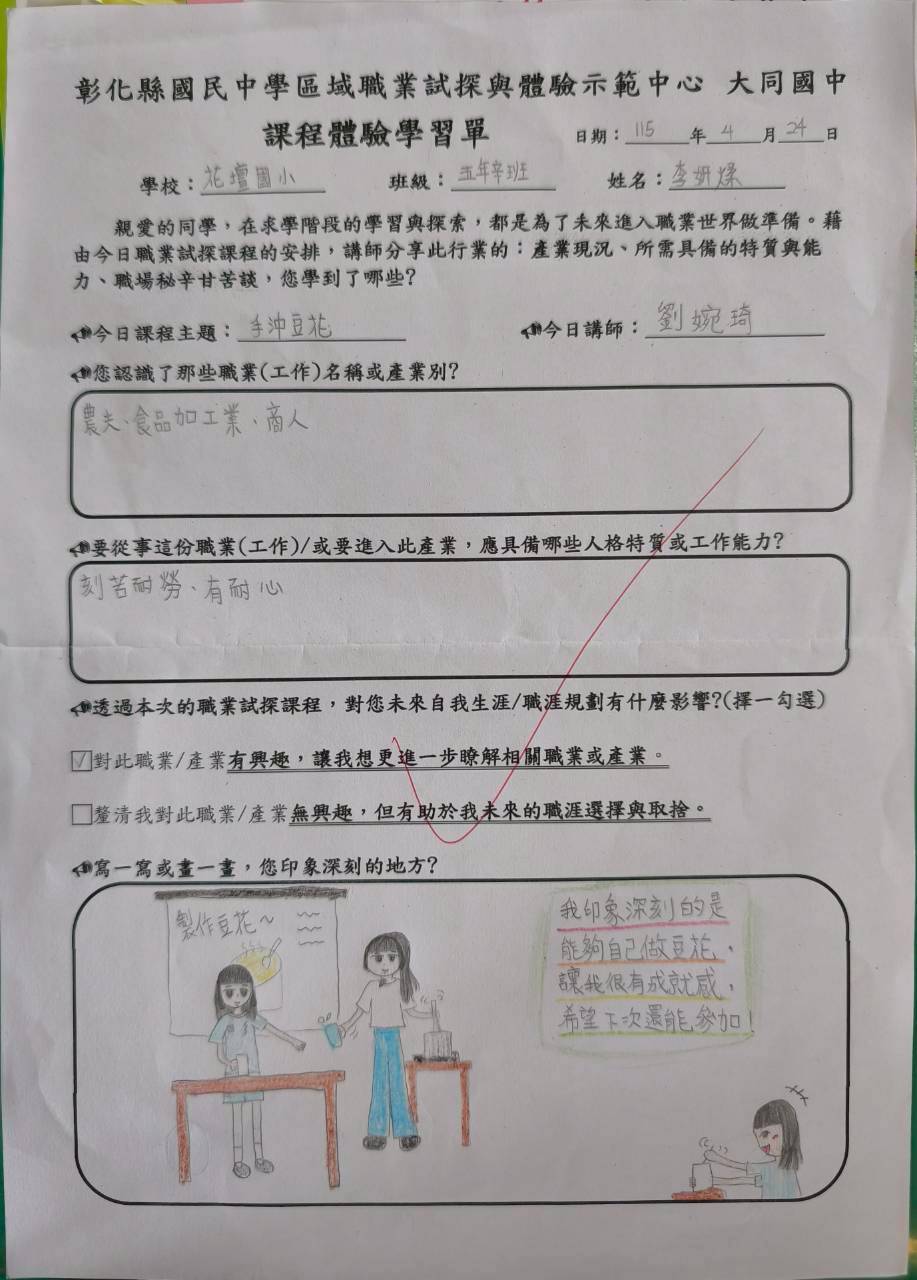 彰化縣國民中學區域職業試探與體驗示範中心 大同國中
課程體驗學習單 日期：115年4月24日
學校：花壇國小 班級：五年辛班 姓名：李妍燦
親愛的同學，在求學階段的學習與探索，都是為了未來進入職業世界做準備。藉
由今日職業試探課程的安排，講師分享此行業的：產業現況、所需具備的特質與能
力、職場秘辛甘苦談，您學到了哪些？
今日課程主題：手沖豆花 今日講師：劉婉琦
您認識了那些職業(工作)名稱或產業別？
農夫、食品加工業、商人
要從事這份職業(工作)/或要進入此產業，應具備哪些人格特質或工作能力？
刻苦耐勞、有耐心
透過本次的職業試探課程，對您未來自我生涯/職涯規劃有什麼影響？(擇一勾選)
☑對此職業/產業有興趣，讓我想更進一步瞭解相關職業或產業。
□釐清我對此職業/產業無興趣，但有助於我未來的職涯選擇與取捨。
寫一寫或畫一畫，您印象深刻的地方？
製作豆花~
我印象深刻的是
能夠自己做豆花，
讓我很有成就感，
希望下次還能參加！